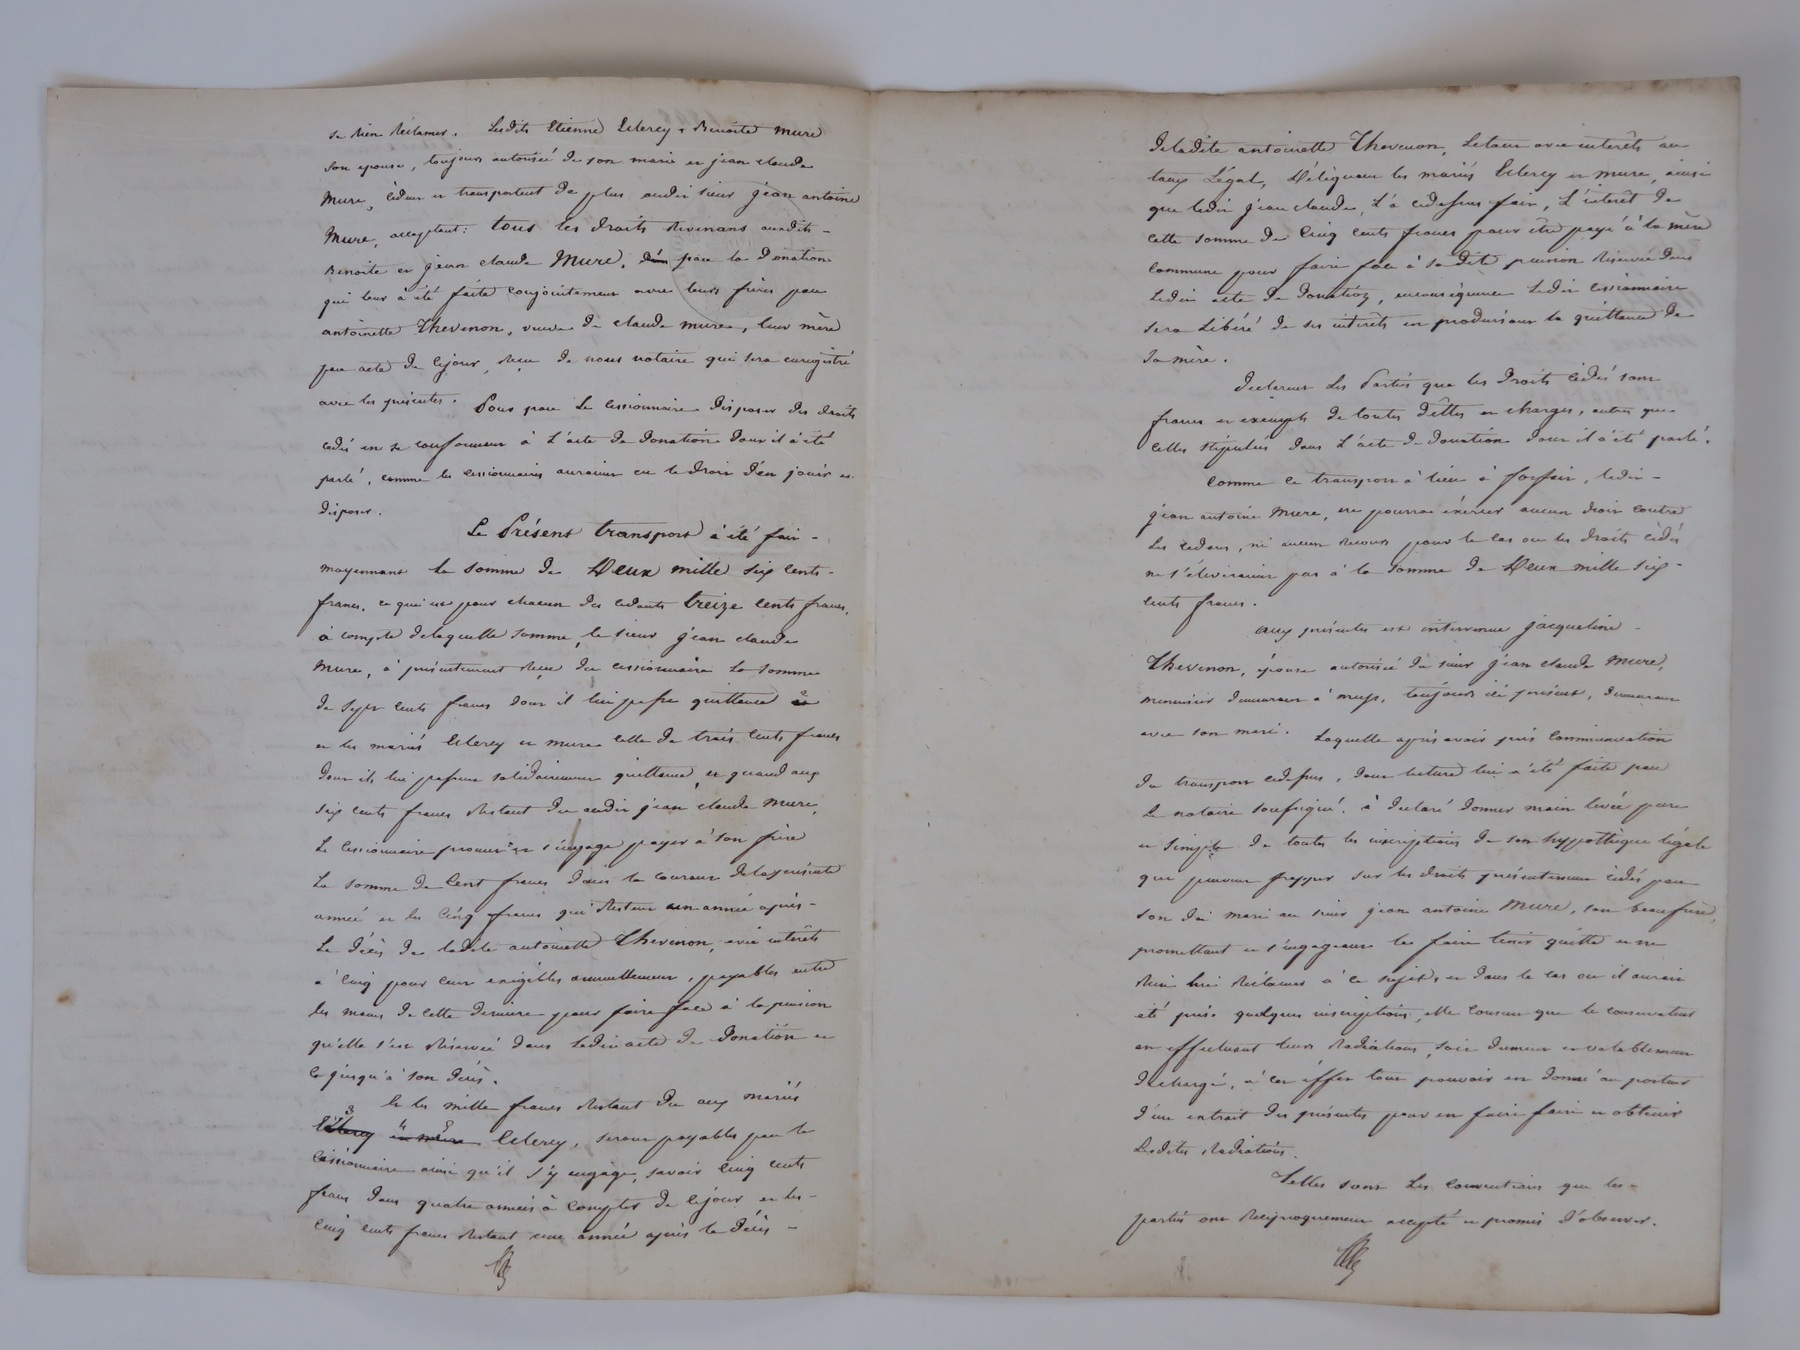 se rien réclamer. Lesdits Etienne Esleroy & Benoite Mure
son epouse, toujours autorisée de son marie et jean claude
Mure, cèdent et transportent de plus audit sieur jean antoine
Mure, acceptant: tous les droits revenans auxdits
Benoite et jean claude Mure, par la donation
qui leur à été faite conjointement avec leurs frères par
antoinette Thevenon, veuve de claude mure, leur mère
par acte de cejour, reçu de nous notaire qui sera enregistré
avec les présentes. Pour par le cessionnaire disposer des droits
cédés en se conformant à l'acte de donation dont il à été
parlé, comme les cessionnaires auraient eu le droit d'en jouir et
disposer.
Le Présent transport à été fait
moyennant la somme de Deux mille six cents
francs, ce qui est pour chacun des cedants treize cents francs,
à compte delaquelle somme, le sieur jean claude
Mure, à présentement reçu du cessionnaire la somme
de sept cents francs dont il lui passe quittance
et les mariés Esleroy et mure celle de trois cents francs
dont ils lui passent solidairement quittance, et quand aux
six cents francs restant du audit jean claude Mure,
Le cessionnaire promet et s'engage payer à son frère
La somme de Cent francs dans le courant delaprésente
année et les Cinq francs qui restent un année après
Le décès de ladite antoinette Thevenon, avec intérêts
à cinq pour cent exigibles annuellement, payables entre
les mains de cette dernière pour faire face à la pension
qu'elle s'est réservée dans ledit acte de Donation et
ce jusqu'à son décès.
Et les mille francs restant du aux mariés
Esleroy et mure Esleroy, seront payables par le
cessionnaire ainsi qu'il s'y engage, savoir cinq cents
francs dans quatre années à compter de cejour et les
cinq cents francs restant une année après le décès
deladite antoinette Thevenon, letout avec intérêts au
taux Légal, Délèguent les mariés Esleroy et mure, ainsi
que ledit jean claude, l'a cidessus fait, L'intérêt de
cette somme de Cinq cents francs pour être payé à la mère
commune pour faire face à sa dite pension réservée dans
Ledit acte de donation, enconséquence Ledit cessionnaire
sera Libéré de ses intérêts en produisant la quittance de
sa mère.
Declarent les Parties que les Droits cédés sont
francs et exempts de toutes dettes et charges, autres que
celles stipulées dans l'acte de donation dont il à été parlé.
Comme ce transport à lieu à forfait, ledit
jean antoine Mure, ne pourra exercer aucun droit contre
Les cedans, ni aucun recours pour le cas ou les droits cédés
ne s'éleveraient pas à la somme de Deux mille six
cents francs.
aux présentes est intervenue jacqueline
Thevenon, épouse autorisée du sieur jean claude Mure,
menuisier demeurant à mups, toujours ici présent, demeurant
avec son mari. Laquelle après avoir pris communication
du transport cidessus, dont lecture lui à été faite par
Le notaire soussigné, à déclaré donner main levée pure
et simple de toutes les inscriptions de son hypothèque légale
qui peuvent frapper sur les droits présentement cédés par
son dit mari au sieur jean antoine Mure, son beaufrère,
promettant et s'engageant les faire tenir quitte et ne
rien lui réclamer à ce sujet, et dans le cas ou il aurait
été pris quelques inscriptions, elle consent que le conservateur
en effectuant leurs radiations, soit dument et valablement
déchargé, à cet effet tout pouvoir est donné au porteur
d'un extrait des présentes pour en faire faire et obtenir
Lesdites radiations.
Telles sont les conventions que les
parties ont reciproquement accepté et promis d'observer.